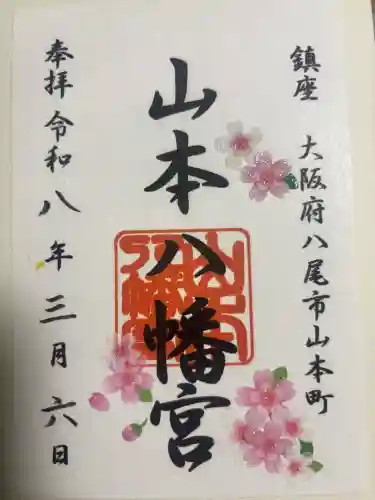 鎮座　大阪府八尾市山本町
山本八幡宮
奉拝　令和八年三月六日